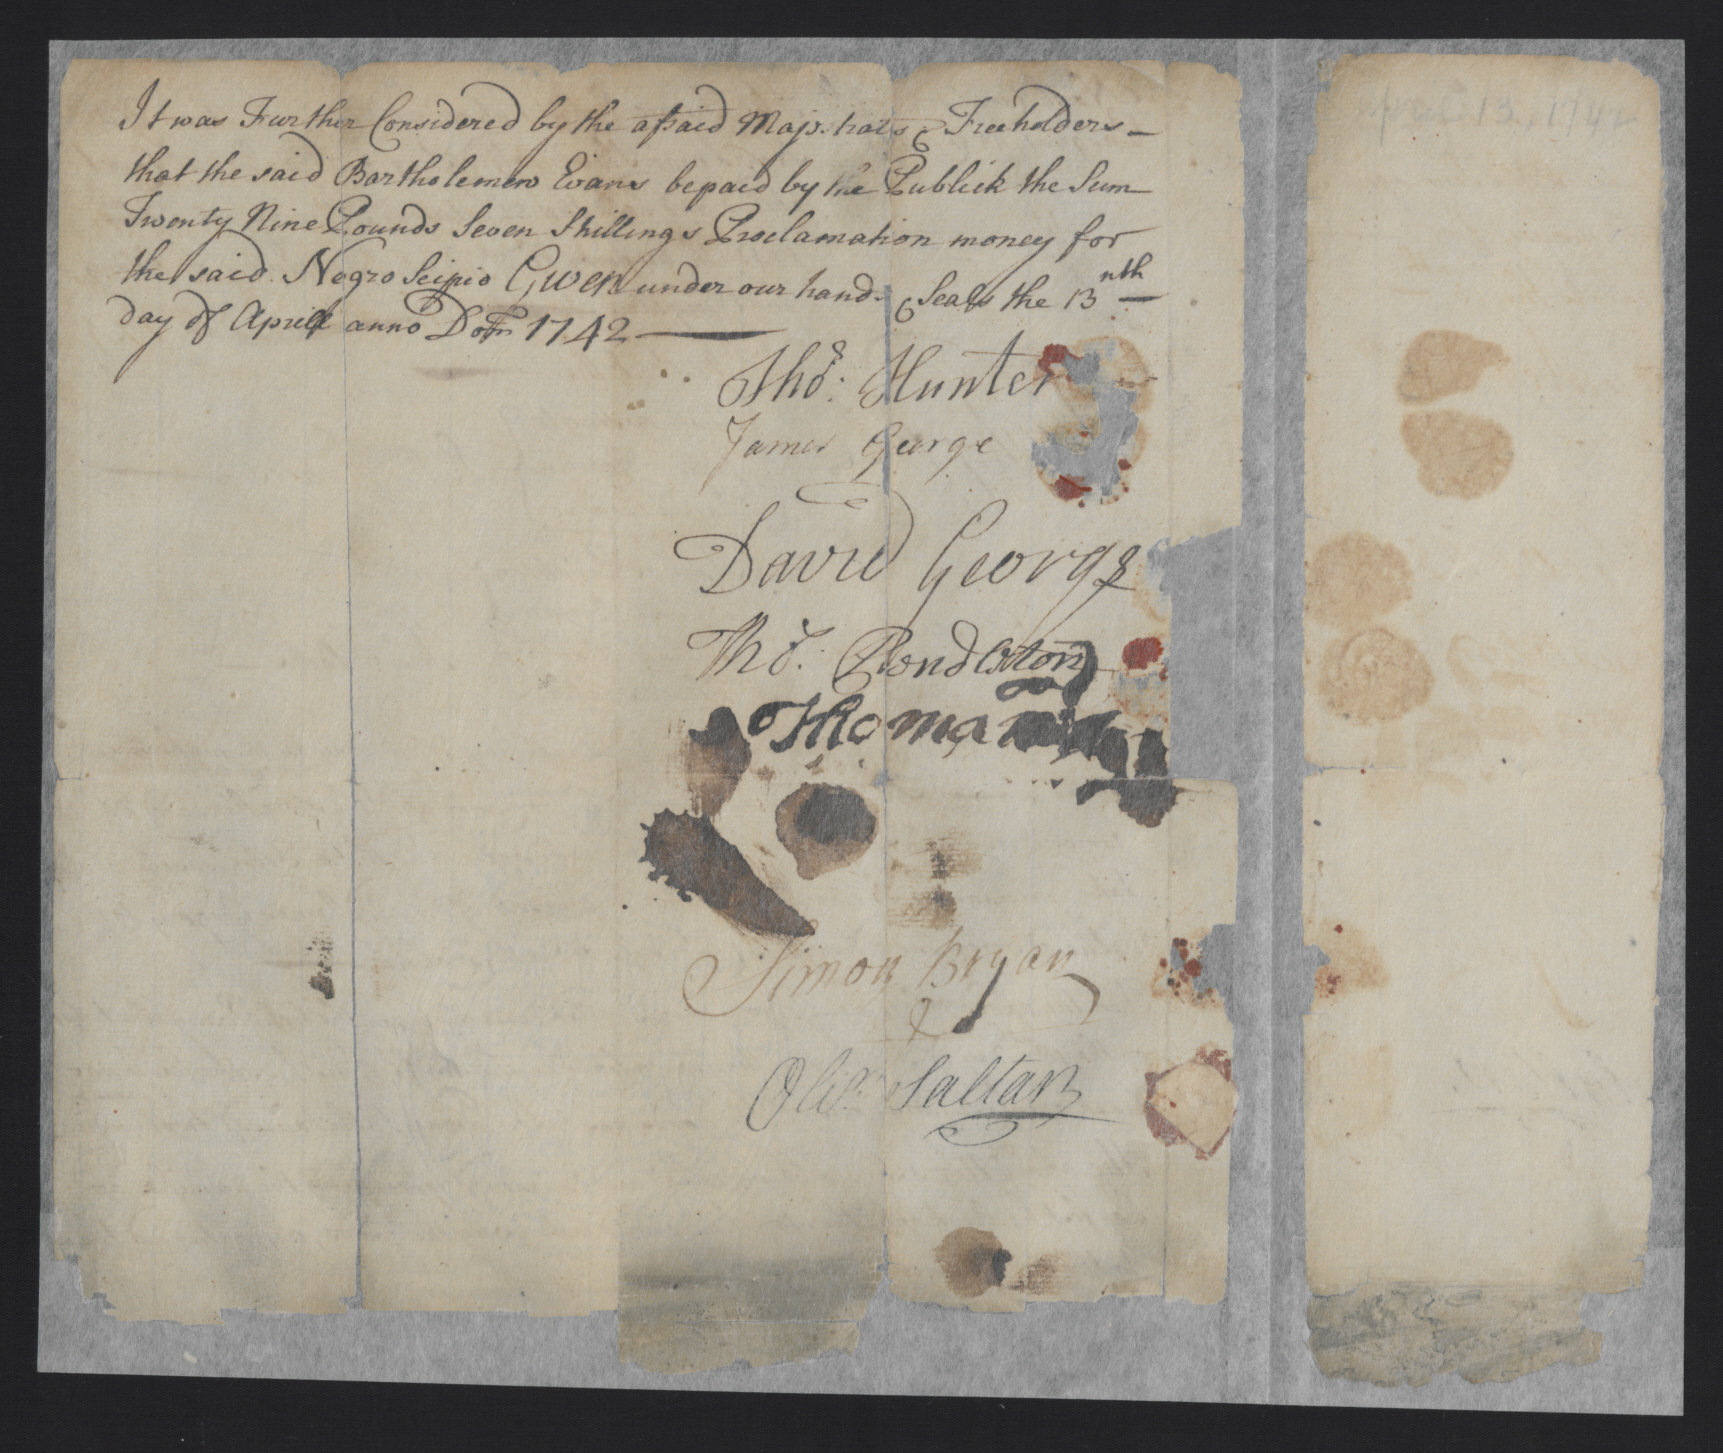 It was Further Considered by the afsaid Majistrats & Freeholders
that the said Bartholemew Evans be paid by the Publick the Sum
Twenty Nine Pounds Seven Shillings Proclamation money for
the said Negro Scipio Given under our hands & Seals the 13nth
day of Aprill anno Dom 1742
Thos: Hunter
James George
David George
Thos: Pendleton
Thomas
Simon Bryan
&
Oliv: Saltar
13, 1742